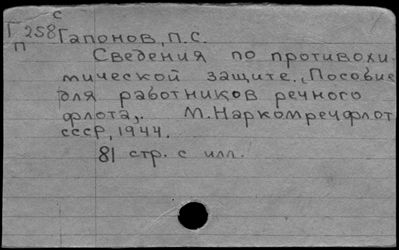 с
Г 258 Гапонов, П.С.
п
Сведения по противохи-
мической защите., Пособие
для работников речного
флота,. М. Наркомречфлот
СССР, 1944.
81 стр. с илл.